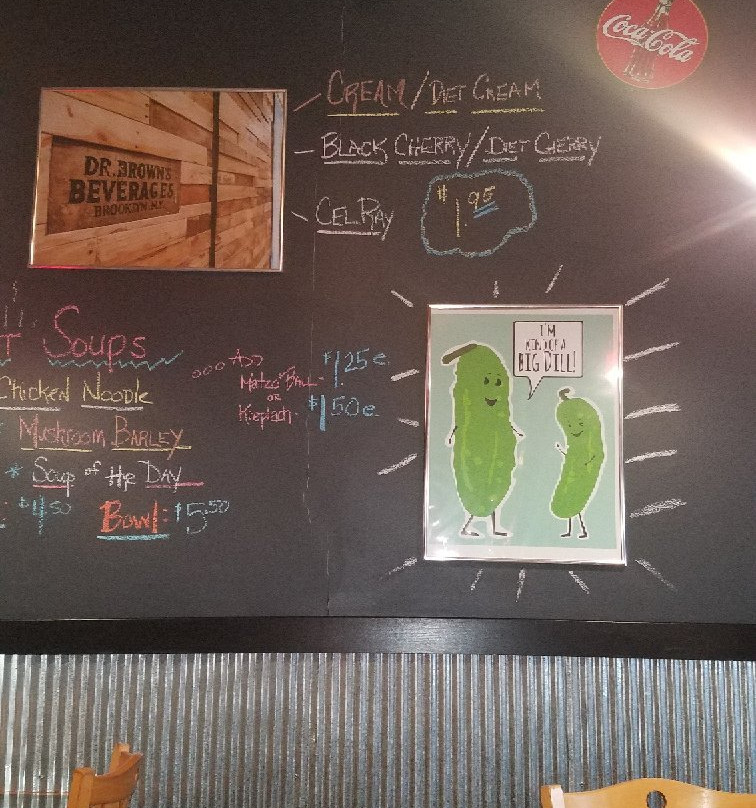 Coca-Cola
CREAM / DIET CREAM
BLACK CHERRY / DIET CHERRY
CEL RAY
$1.95
DR. BROWN'S
BEVERAGES
BROOKLYN N.Y.
T Soups
ADD
MATZO BALL - $1.25 e.
OR
Kreplach - $1.50 e.
CHICKEN NOODLE
MUSHROOM BARLEY
* Soup of the DAY
: $4.50 Bowl: $5.50
I'M
KIND OF A
BIG DILL!